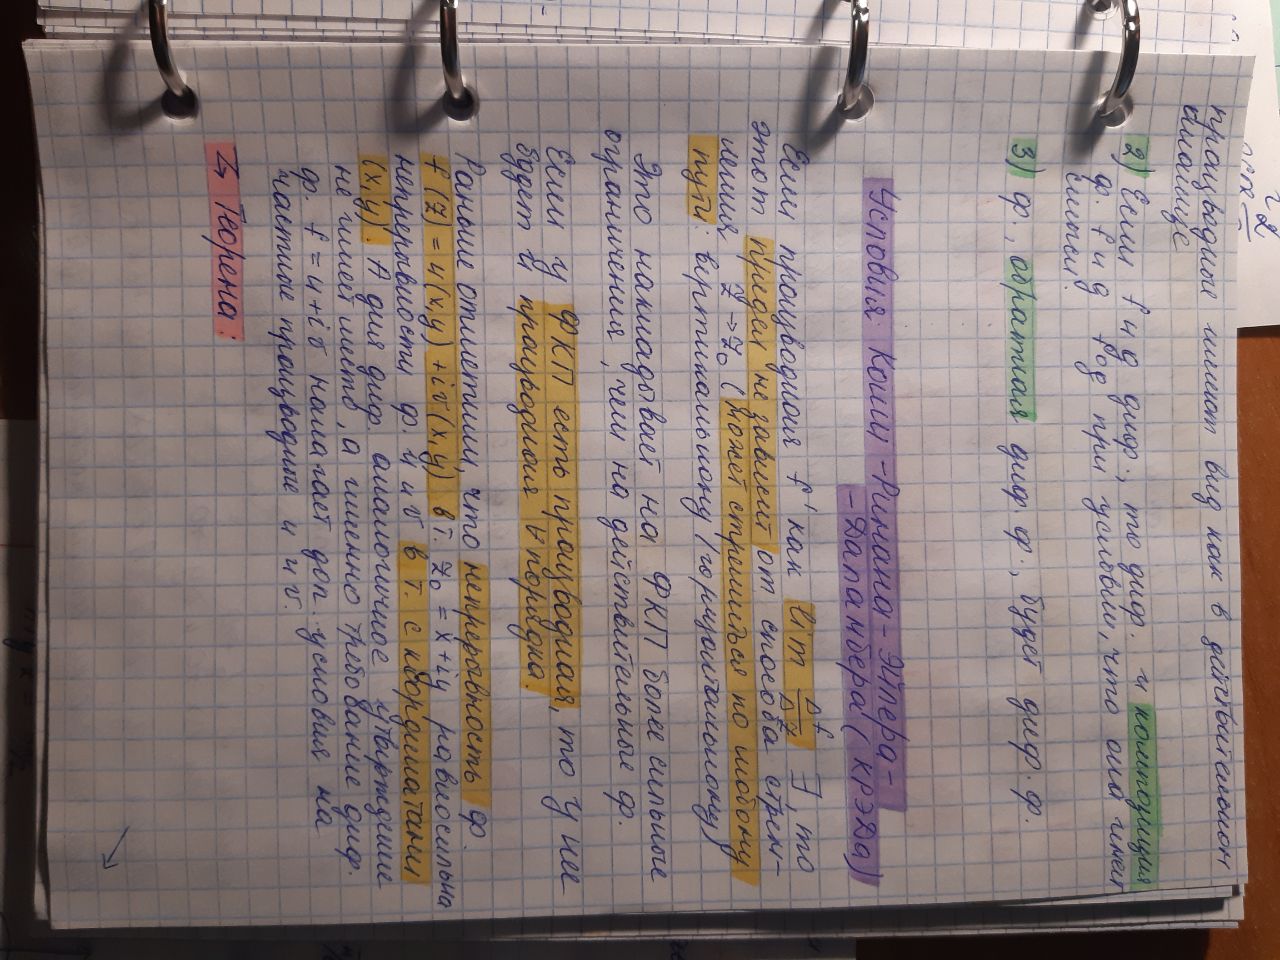 производные имеют вид как в действительном
анализе
2) Если f и g диф., то диф. и композиция
ф. f и g f∘g при условии, что она имеет
смысл
3) ф., обратная диф. ф., будет диф. ф.
Условия Коши-Римана-Эйлера-
-Даламбера (КРЭДа)
Если производная f' как lim Δf/Δz ∃, то
этот предел не зависит от способа стрем-
ления z→z₀ (может стремиться по любому
пути: вертикальному/горизонтальному)
Это накладывает на ФКП более сильные
ограничения, чем на действительные ф.
Если у ФКП есть производная, то у нее
будет и производная ∀ порядка.
Раньше отметили, что непрерывность ф.
f(z) = u(x,y) + iv(x,y) в т. z₀ = x+iy равносильна
непрерывности ф. u и v в т. с координатами
(x,y). А для диф. аналогичное утверждение
не имеет место, а именно требование диф.
ф. f = u+iv налагает доп. условия на
частные производные u и v.
Теорема: